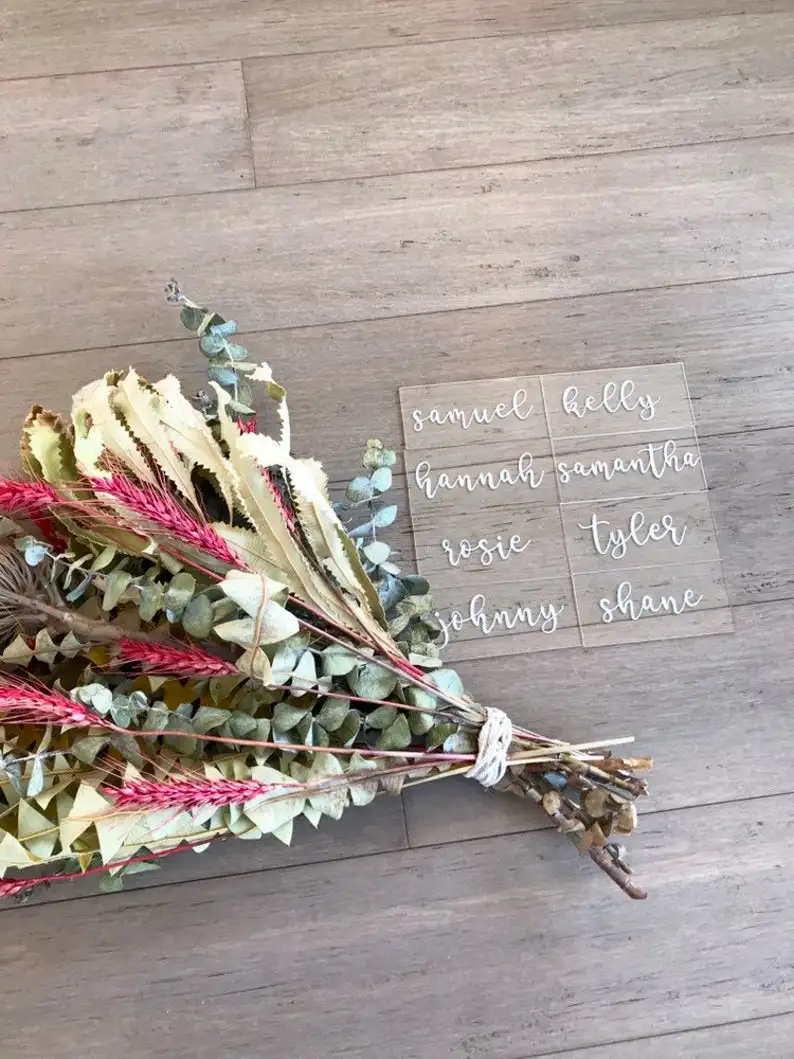 samuel kelly
hannah samantha
rosie tyler
johnny shane